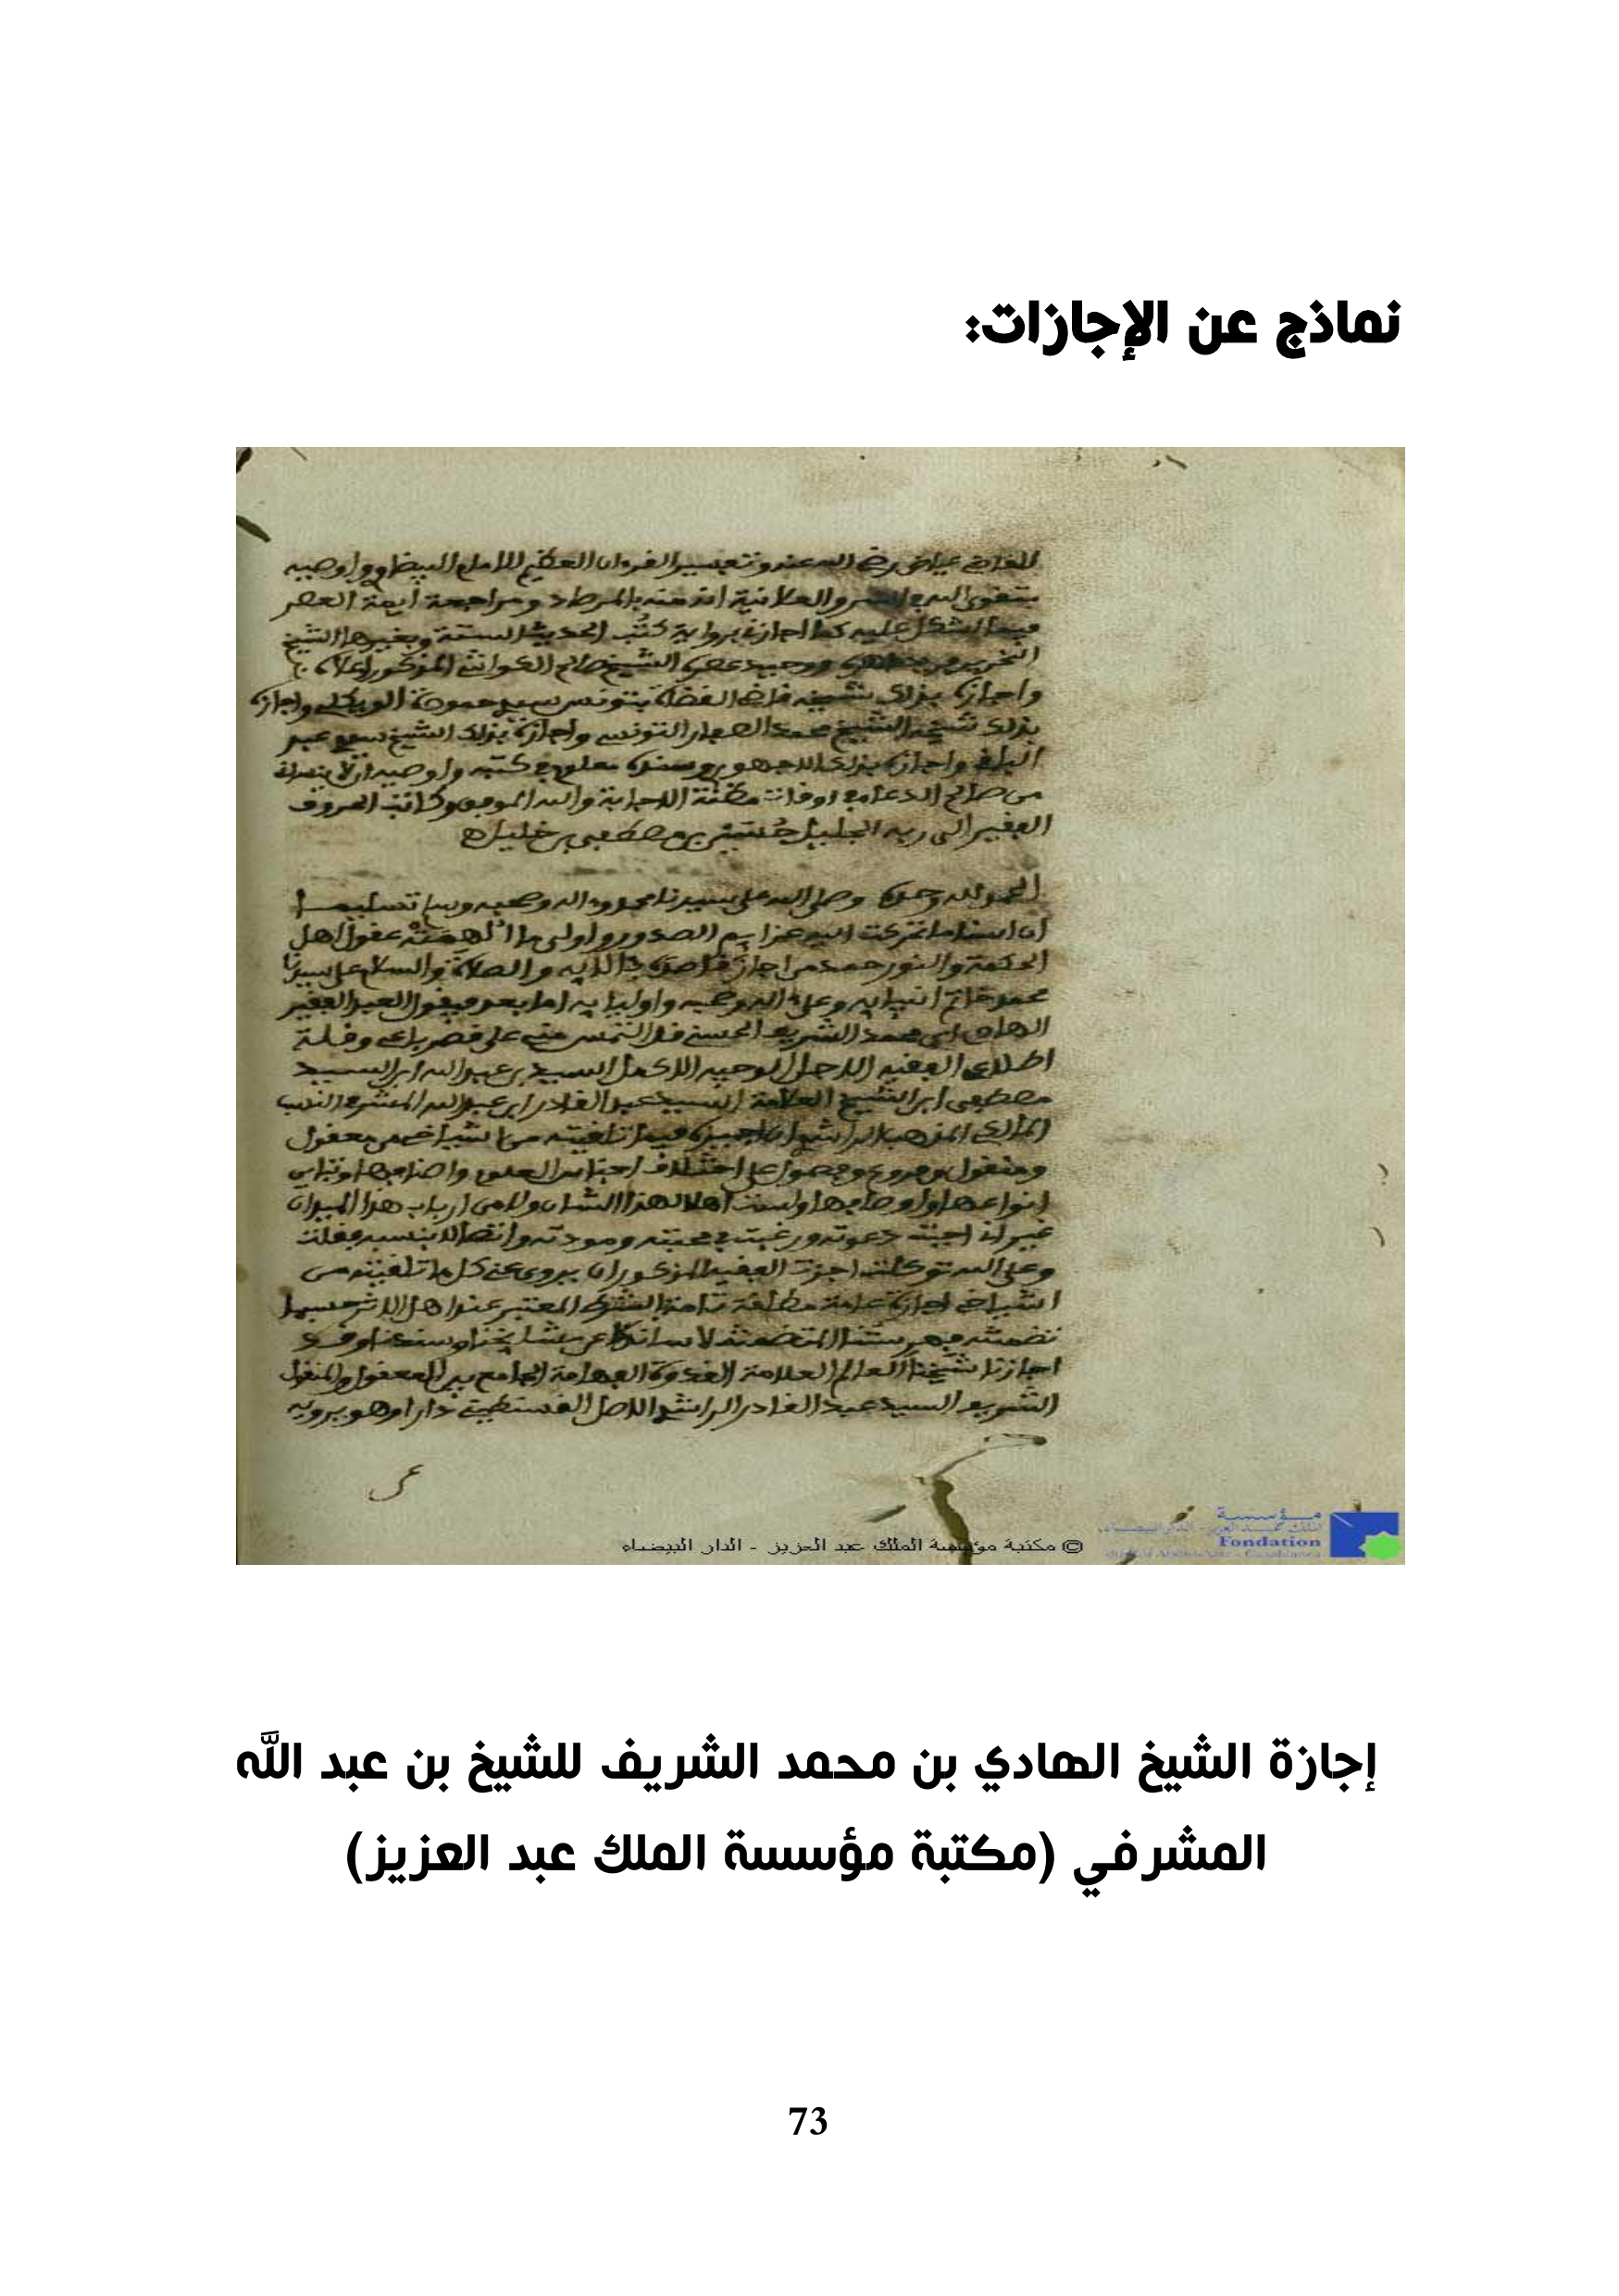 نماذج عن الإجازات:
للقاضي عياض رضي الله عنه وتفسير القرءان العظيم للامام البيضاوي واوصيه
بتقوى الله في السر والعلانية ومراجعة أيمة العصر
فيما اشكل عليه كما اجازني برواية كُتُب الحديث الستة وبغيرها الشيخ
النحرير ووحيد عصره الشيخ صالح الكواشي المذكور اعلاه
واجازه بذلك شيخه قاضي القضاة بتونس سيدي حمودة واجازه
بذلك شيخه الشيخ محمد التونسي واجازه بذلك الشيخ سيدي عبد
الباقي واجازه بذلك الاجهوري وسنده معلوم في كتبه واوصيه ان لا ينساني
من صالح الدعاء في اوقات مظنة الاجابة والله الموفق وكاتب الحروف
الفقير الى ربه الجليل حُسَيْن بن مصطفى بن خليل اه
الحمد لله وحده وصلى الله على سيدنا محمد وءاله وصحبه وسلم تسليما
ان اسنا ما تحركت اليه عزايم الصدور واولى ما الهمته عقول اهل
الحكمة والنور حمد من اجاز قاصده بالايه والصلاة والسلام على سيدنا
محمد خاتم انبيايه وعلى اله وصحبه واوليايه اما بعد فيقول العبد الفقير
الهادي ابن محمد الشريف الحسني قد التمس مني على قصر باعي وقلة
اطلاعي الفقيه الاجل الوجيه الاكمل السيد بن عبد الله ابن السيد
مصطفى ابن الشيخ العلامة السيد عبد القادر ابن عبد الله المشرفي النسب
المالكي المذهب ان اجيزه فيما تلقيته من اشياخي من معقول
ومنقول وفروع واصول على اختلاف اجناس العلوم واصنافها وتباين
انواعها واوصافها ولست اهلا لهذا الشان ولا من ارباب هذا الميدان
غير اني اجبت دعوته ورغبت في محبته ومودته واتصالا بنسبه فقلت
وعلى الله توكلت اجزت الفقيه المذكور ان يروي عني كل ما تلقيته من
اشياخي اجازة عامة مطلقة تامة بالشرط المعتبر عند اهل الاثر حسبما
تضمنته فهرستنا المتضمنة لاسانيدنا عن مشايخنا وسندنا وقد
اجازنا شيخنا العالم العلامة القدوة الفهامة الجامع بين المعقول والمنقول
الشريف السيد عبد القادر الراشدي الاصل القسنطيني دارا وهو يرويه
عن
© مكتبة مؤسسة الملك عبد العزيز - الدار البيضاء
مؤسسة
الملك عبد العزيز - الدار البيضاء
Fondation
du Roi Abdul-Aziz - Casablanca
إجازة الشيخ الهادي بن محمد الشريف للشيخ بن عبد الله
المشرفي (مكتبة مؤسسة الملك عبد العزيز)
73